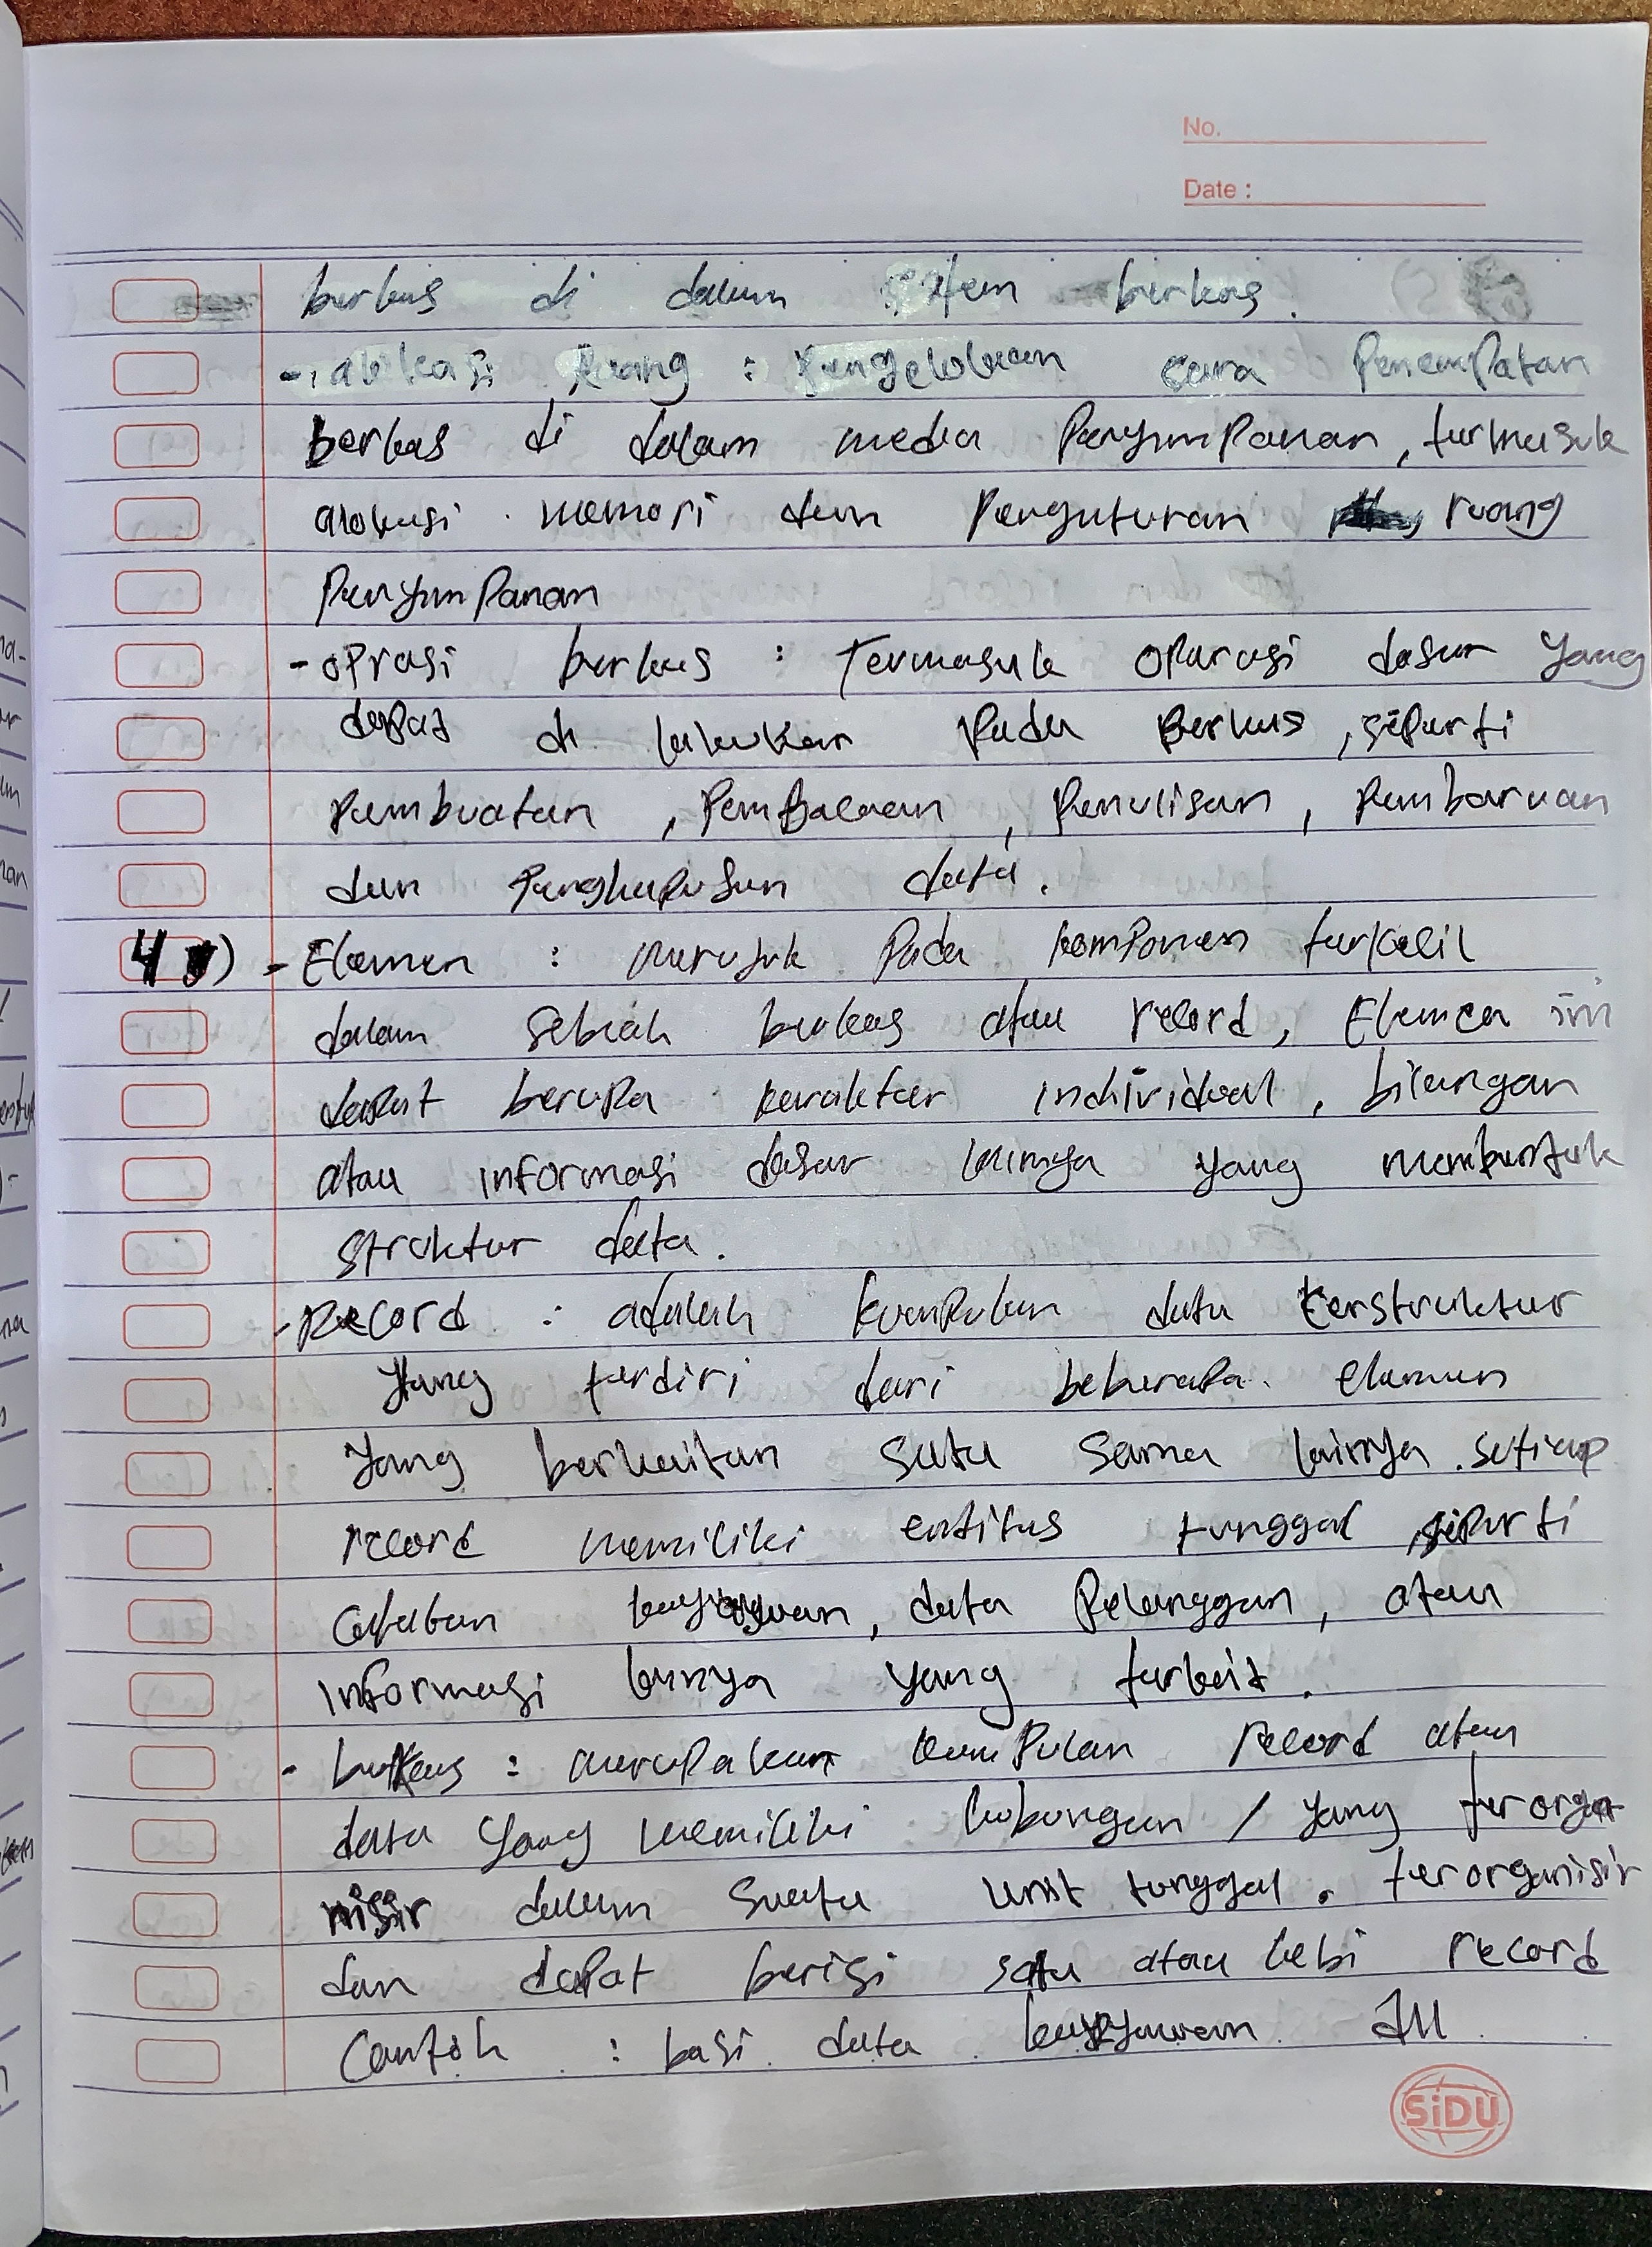 No.
Date :
berkas di dalam sistem berkas.
- alokasi ruang : Pengelolaan cara Penempatan
berkas di dalam media Penyimpanan, termasuk
alokasi memori dan Pengaturan ruang
Penyimpanan
- oprasi berkas : Termasuk oparasi dasar yang
dapat di lakukan Pada Berkas, seperti
Pembuatan, Pembacaan, Penulisan, Pembaruan
dan Penghapusan data.
4 ) - Elemen : merujuk Pada komponen terkecil
dalam sebuah berkas atau record, Elemen ini
dapat berupa karakter individual, bilangan
atau informasi dasar lainnya yang membentuk
struktur data.
- Record : adalah kumpulan data terstruktur
Yang terdiri dari beberapa elemen
Yang berkaitan satu sama lainnya. setiap
record memiliki entitas tunggal, seperti
catatan karyawan, data Pelanggan, atau
informasi lainya yang terkait.
- berkas : merupakan kumpulan record atau
data yang memiliki hubungan / yang terorga
nisir dalam suatu unit tunggal. terorganisir
dan dapat berisi satu atau lebi record
Contoh : basi data karyawan
SiDU